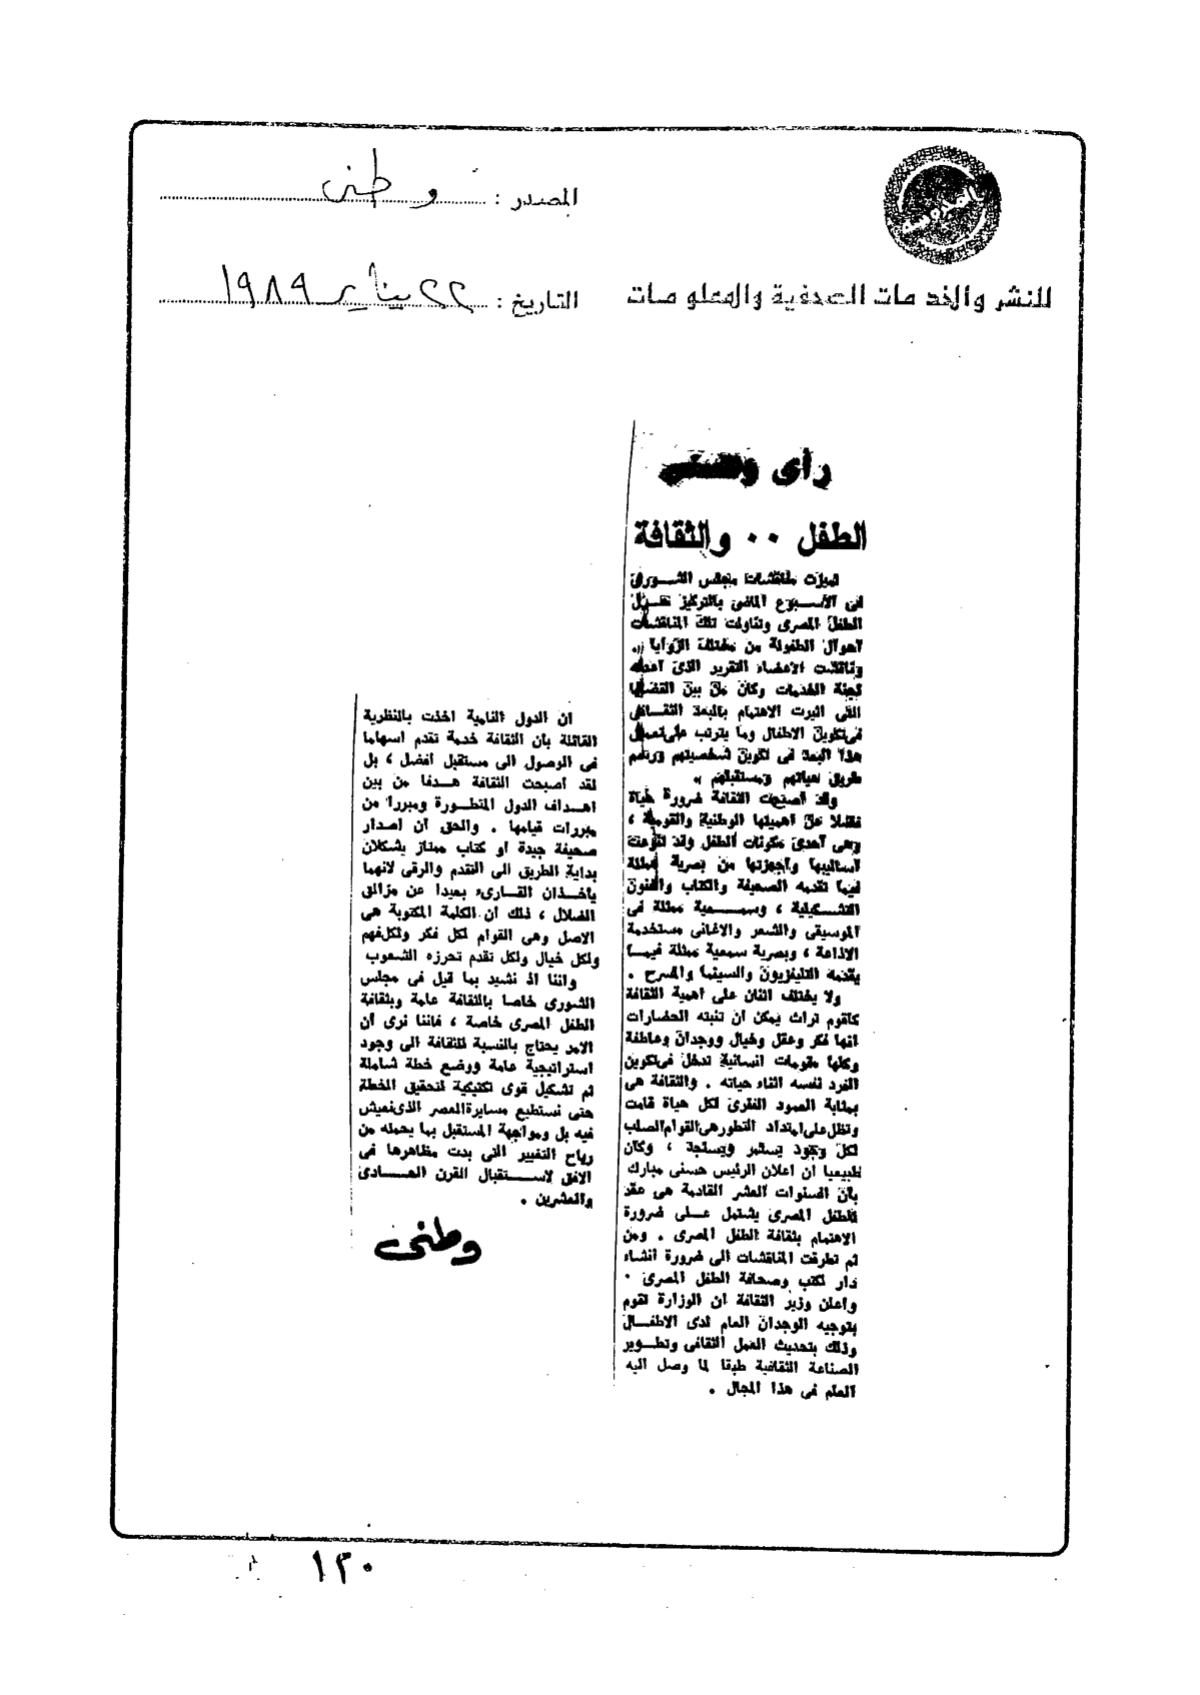 المصدر : وطنى
للنشر والخدمات الصحفية والمعلومات
التاريخ : ٢٢ يناير ١٩٨٩
رأى وطنى
الطفل ٠٠ والثقافة
تميزت مناقشات مجلس الشورى
فى الأسبوع الماضى بالتركيز
الطفل المصرى وتناولت تلك المناقشات
أحوال الطفولة من مختلف الزوايا ..
وناقشت الأعضاء التقرير الذى أعدته
لجنة الخدمات وكان من بين القضايا
التى اثيرت الاهتمام بالبعد الثقافى
فى تكوين الاطفال وما يترتب على
هذا البعد فى تكوين شخصيتهم ورسم
طريق حياتهم ومستقبلهم .
وقد أصبحت الثقافة ضرورة حياة
فضلا عن أهميتها الوطنية والقومية ،
وهى أحدى مكونات الطفل وقد تنوعت
أساليبها وأجهزتها من بصرية ممثلة
فيما تقدمه الصحيفة والكتاب والفنون
التشكيلية ، وسمعية ممثلة فى
الموسيقى والشعر والاغانى مستخدمة
الاذاعة ، وبصرية سمعية ممثلة فيما
يقدمه التليفزيون والسينما والمسرح .
ولا يختلف اثنان على أهمية الثقافة
كأقوم تراث يمكن ان تنبته الحضارات
انها فكر وعقل وخيال ووجدان وعاطفة
وكلها مقومات انسانية تدخل فى تكوين
الفرد نفسه اثناء حياته . والثقافة هى
بمثابة العمود الفقرى لكل حياة قامت
وتظل على امتداد التطور هى القوام الصلب
لكل وجود يستمر ويستجد ، وكان
طبيعيا ان اعلان الرئيس حسنى مبارك
بأن السنوات العشر القادمة هى عقد
للطفل المصرى يشتمل على ضرورة
الاهتمام بثقافة الطفل المصرى . ومن
ثم تطرقت المناقشات الى ضرورة انشاء
دار لكتب وصحافة الطفل المصرى .
وأعلن وزير الثقافة ان الوزارة تقوم
بتوجيه الوجدان العام لدى الاطفال
وذلك بتحديث العمل الثقافى وتطوير
الصناعة الثقافية طبقا لما وصل اليه
العلم فى هذا المجال .
ان الدول النامية اخذت بالنظرية
القائلة بأن الثقافة خدمة تقدم اسهاما
فى الوصول الى مستقبل أفضل ، بل
لقد أصبحت الثقافة هدفا من بين
اهداف الدول المتطورة ومبررا من
مبررات قيامها . والحق أن اصدار
صحيفة جيدة او كتاب ممتاز يشكلان
بداية الطريق الى التقدم والرقى لانهما
يأخذان القارىء بعيدا عن مزالق
الضلال ، ذلك أن الكلمة المكتوبة هى
الاصل وهى القوام لكل فكر ولكل فهم
ولكل خيال ولكل تقدم تحرزه الشعوب
واننا اذ نشيد بما قيل فى مجلس
الشورى خاصا بالثقافة عامة وبثقافة
الطفل المصرى خاصة ، فاننا نرى أن
الامر يحتاج بالنسبة للثقافة الى وجود
استراتيجية عامة ووضع خطة شاملة
ثم تشكيل قوى تكتيكية لتحقيق الخطة
حتى نستطيع مسايرة العصر الذى نعيش
فيه بل ومواجهة المستقبل بما يحمله من
رياح التغيير التى بدت مظاهرها فى
الافق لاستقبال القرن الحادى
والعشرين .
وطنى
١٣٠